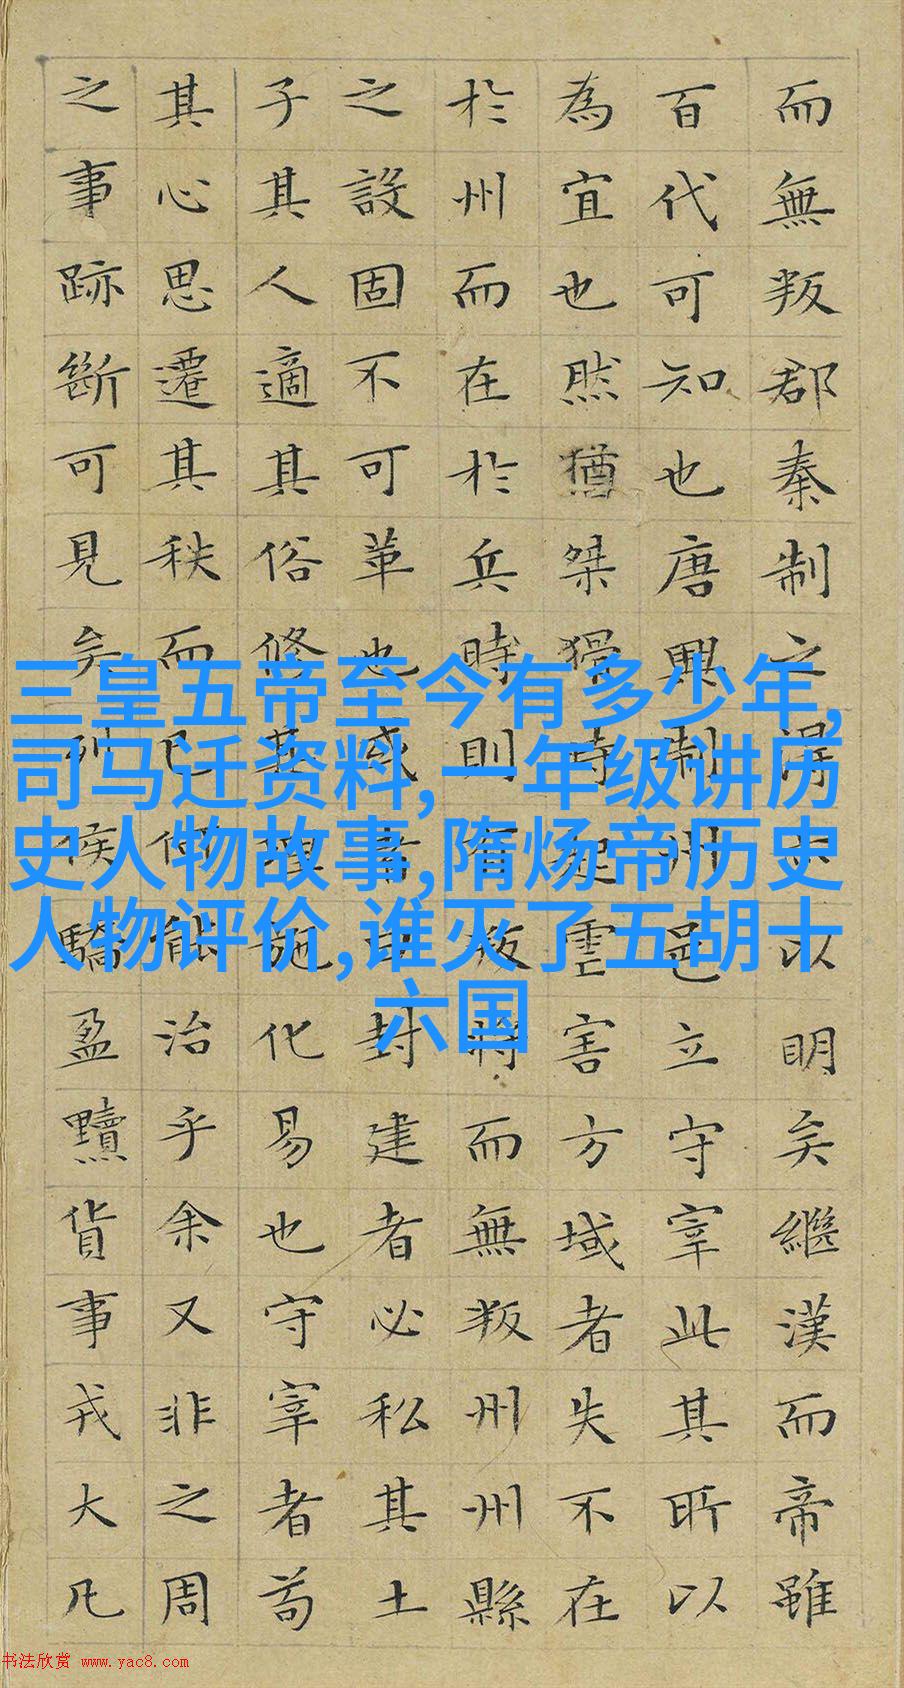 而無叛郡秦制之得亦以明矣繼漢而帝雖
百代可知也唐興制州邑立守宰此其所以
為宜也然猶桀猾時起虐害方域者失不在
於州而在於兵時則有叛將而無叛州州縣
之設固不可革也或者曰封建者必私其土
子其人適其俗修其理施化易也守宰者苟
其心思遷其秩而已何能治乎余又非之周
之事跡斷可見矣列侯驕盈黷貨事戎大凡
三皇五帝至今有多少年,
司马迁资料,一年级讲历
史人物故事,隋炀帝历史
人物评价,谁灭了五胡十
六国
书法欣赏 www.yac8.com